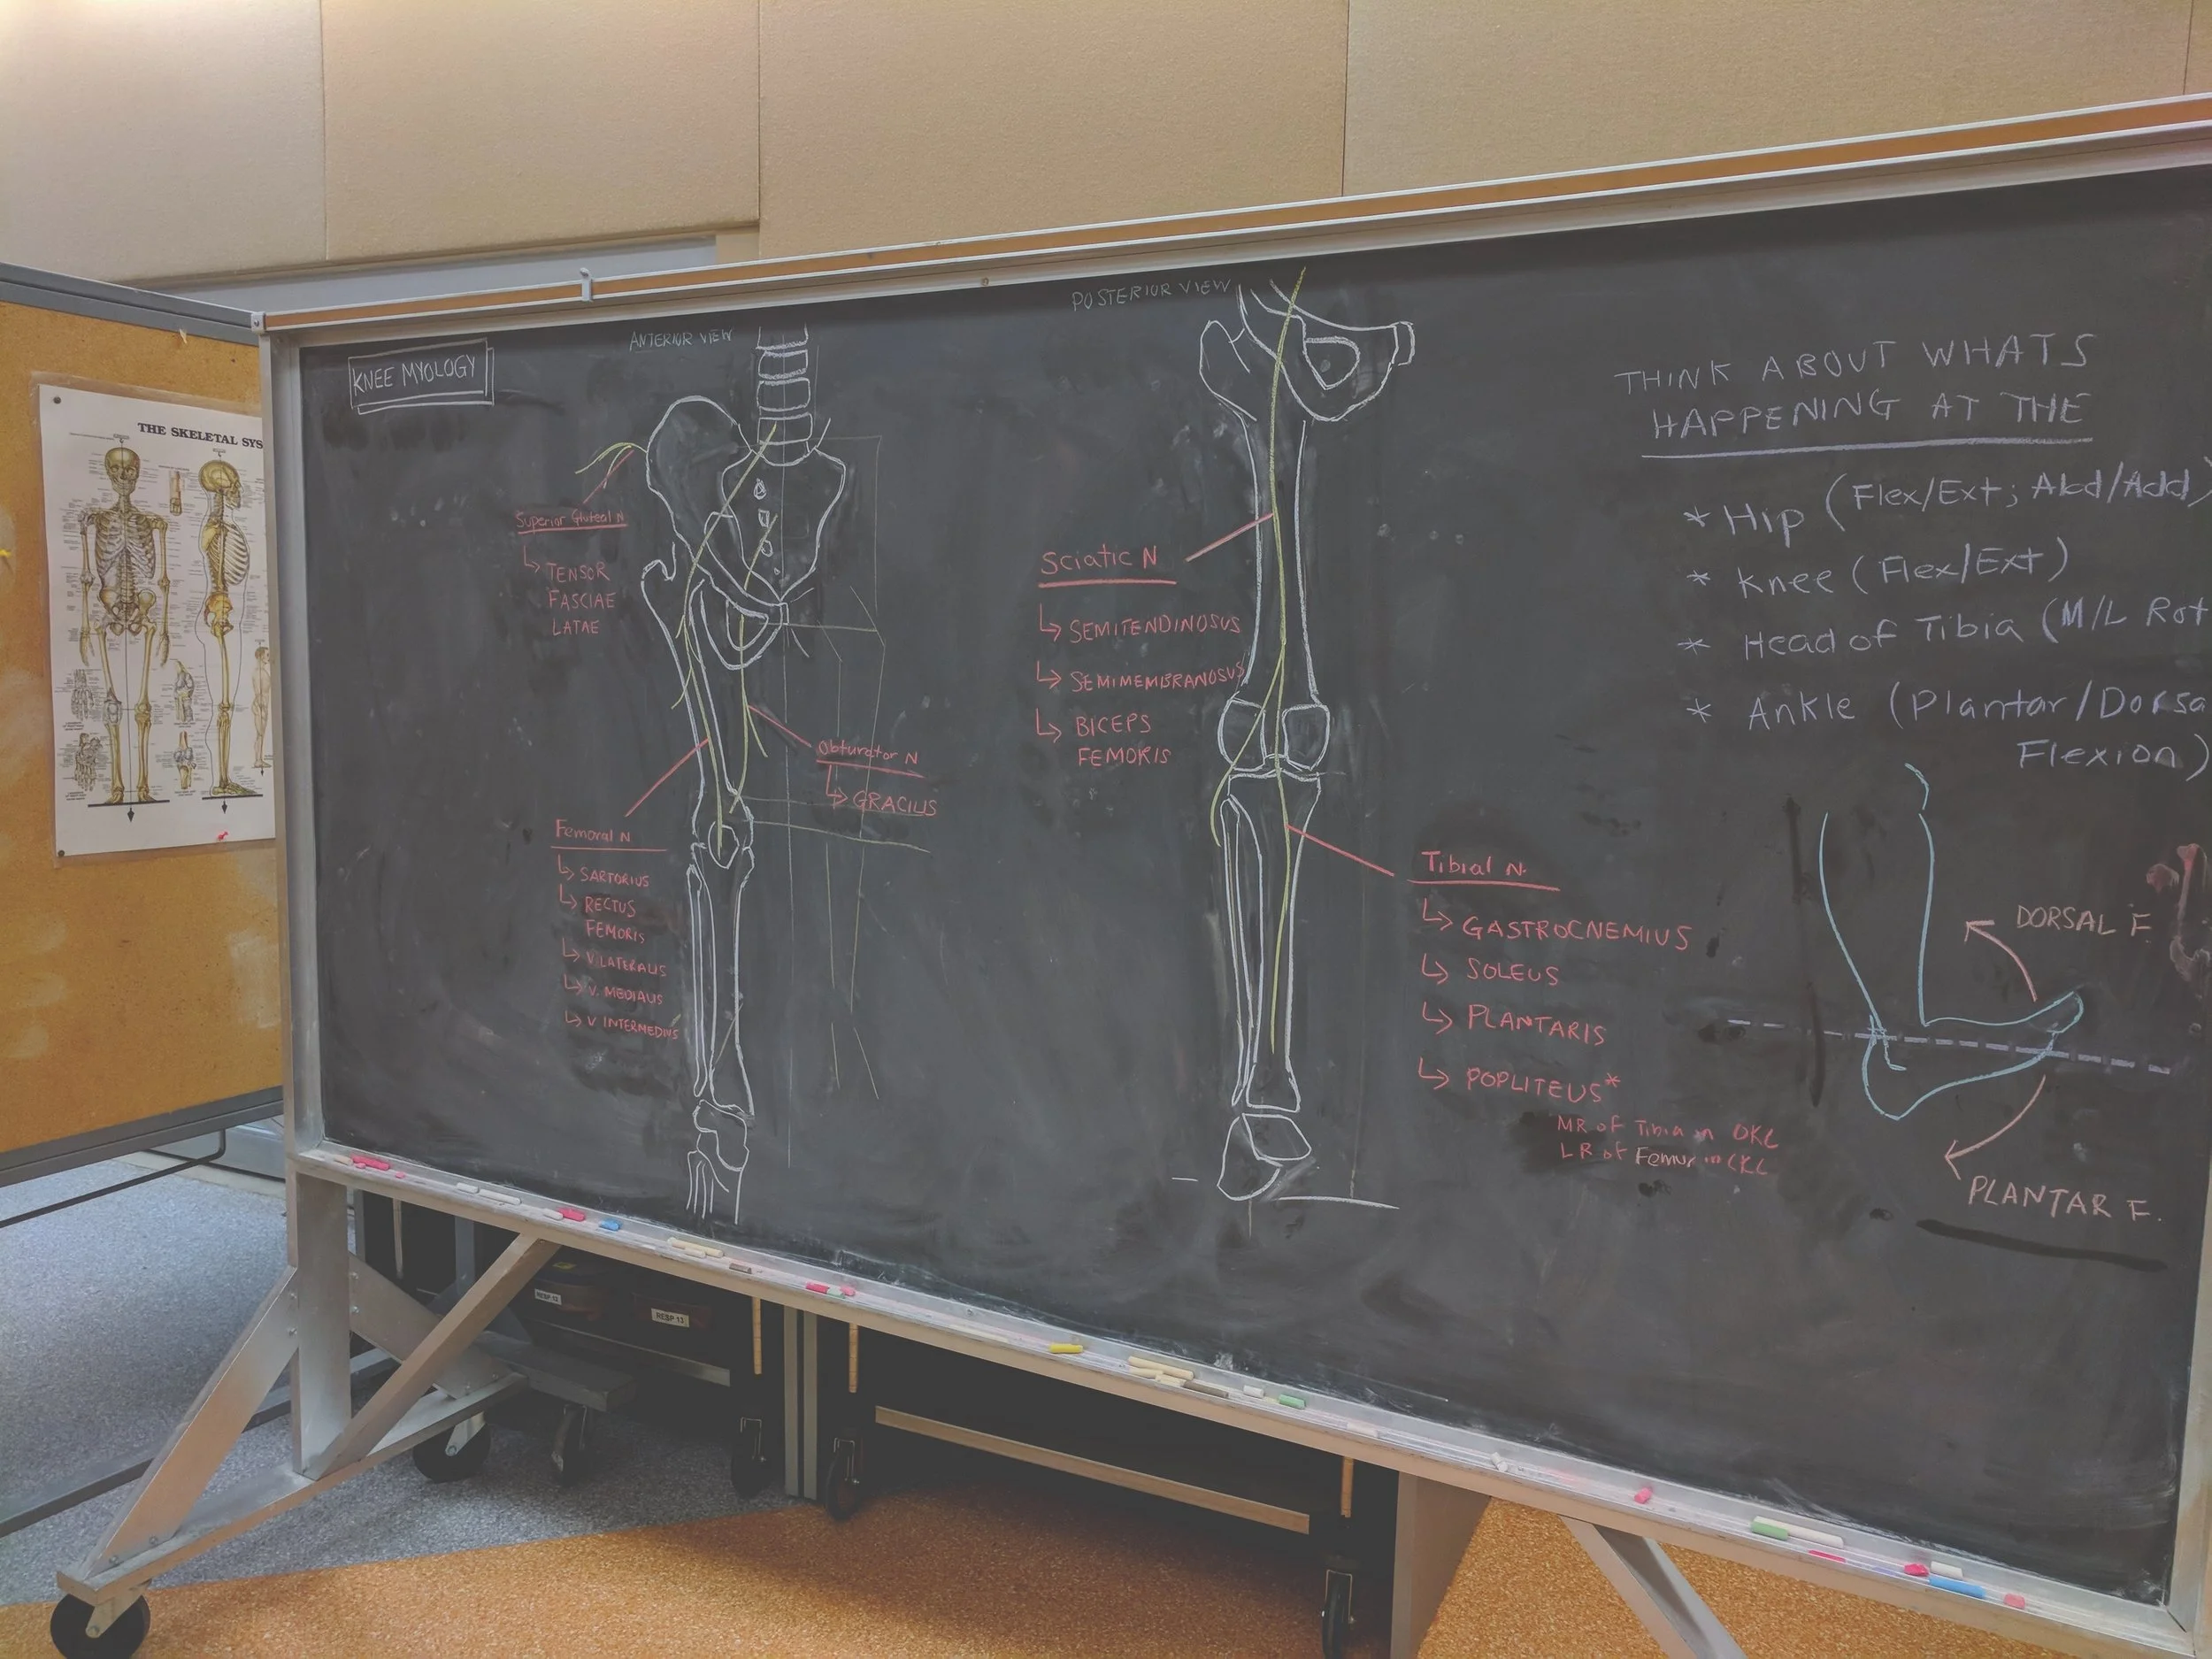 THE SKELETAL SYS
KNEE MYOLOGY
ANTERIOR VIEW
Superior Gluteal N
↳ TENSOR
FASCIAE
LATAE
Obturator N
↳ GRACILIS
Femoral N
↳ SARTORIUS
↳ RECTUS
FEMORIS
↳ V. LATERALIS
↳ V. MEDIALIS
↳ V INTERMEDIUS
POSTERIOR VIEW
Sciatic N
↳ SEMITENDINOSUS
↳ SEMIMEMBRANOSUS
↳ BICEPS
FEMORIS
Tibial N.
↳ GASTROCNEMIUS
↳ SOLEUS
↳ PLANTARIS
↳ POPLITEUS*
MR of Tibia in OKC
LR of Femur in CKC
THINK ABOUT WHATS
HAPPENING AT THE
* Hip (Flex/Ext; Abd/Add)
* Knee (Flex/Ext)
* Head of Tibia (M/L Rot
* Ankle (Plantar/Dorsa
Flexion)
DORSAL F.
PLANTAR F.
RESP 12
RESP 13